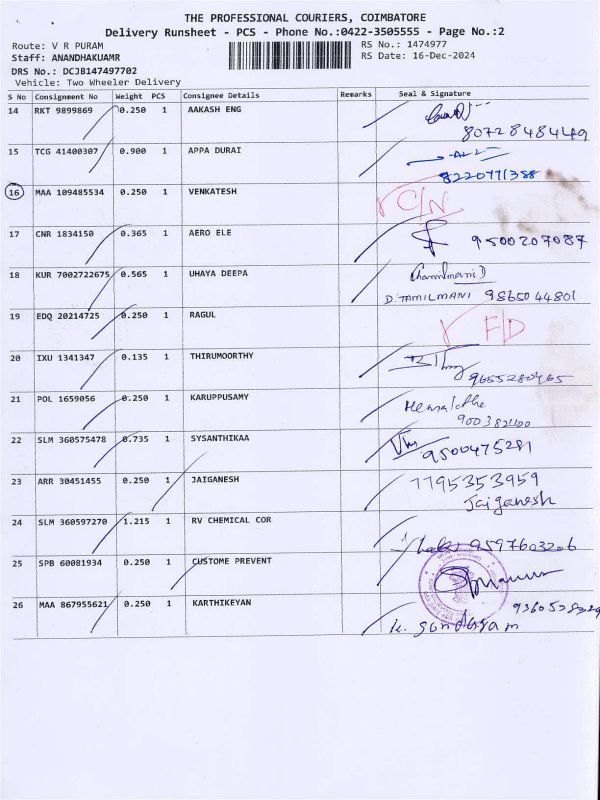 THE PROFESSIONAL COURIERS, COIMBATORE
Delivery Runsheet - PCS - Phone No.:0422-3505555 - Page No.:2
Route: V R PURAM
RS No.: 1474977
Staff: ANANDHAKUAMR
RS Date: 16-Dec-2024
DRS No.: DCJB147497702
Vehicle: Two Wheeler Delivery
S No Consignment No Weight PCS Consignee Details Remarks Seal & Signature
14 RKT 9899869 0.250 1 AAKASH ENG
8072848449
15 TCG 41400307 0.900 1 APPA DURAI
8220771388
16 MAA 109485534 0.250 1 VENKATESH C/N
17 CNR 1834150 0.365 1 AERO ELE 9500207087
18 KUR 7002722675 0.565 1 UHAYA DEEPA
D.TAMILMANI 9865044801
19 EDQ 20214725 0.250 1 RAGUL F/D
20 IXU 1341347 0.135 1 THIRUMOORTHY
9655280465
21 POL 1659056 0.250 1 KARUPPUSAMY
22 SLM 360575478 0.735 1 SYSANTHIKAA 9500475281
23 ARR 30451455 0.250 1 JAIGANESH 7795353959
Jaiganesh
24 SLM 360597270 1.215 1 RV CHEMICAL COR
9597603206
25 SPB 60081934 0.250 1 CUSTOME PREVENT
26 MAA 867955621 0.250 1 KARTHIKEYAN
K. Sundaram